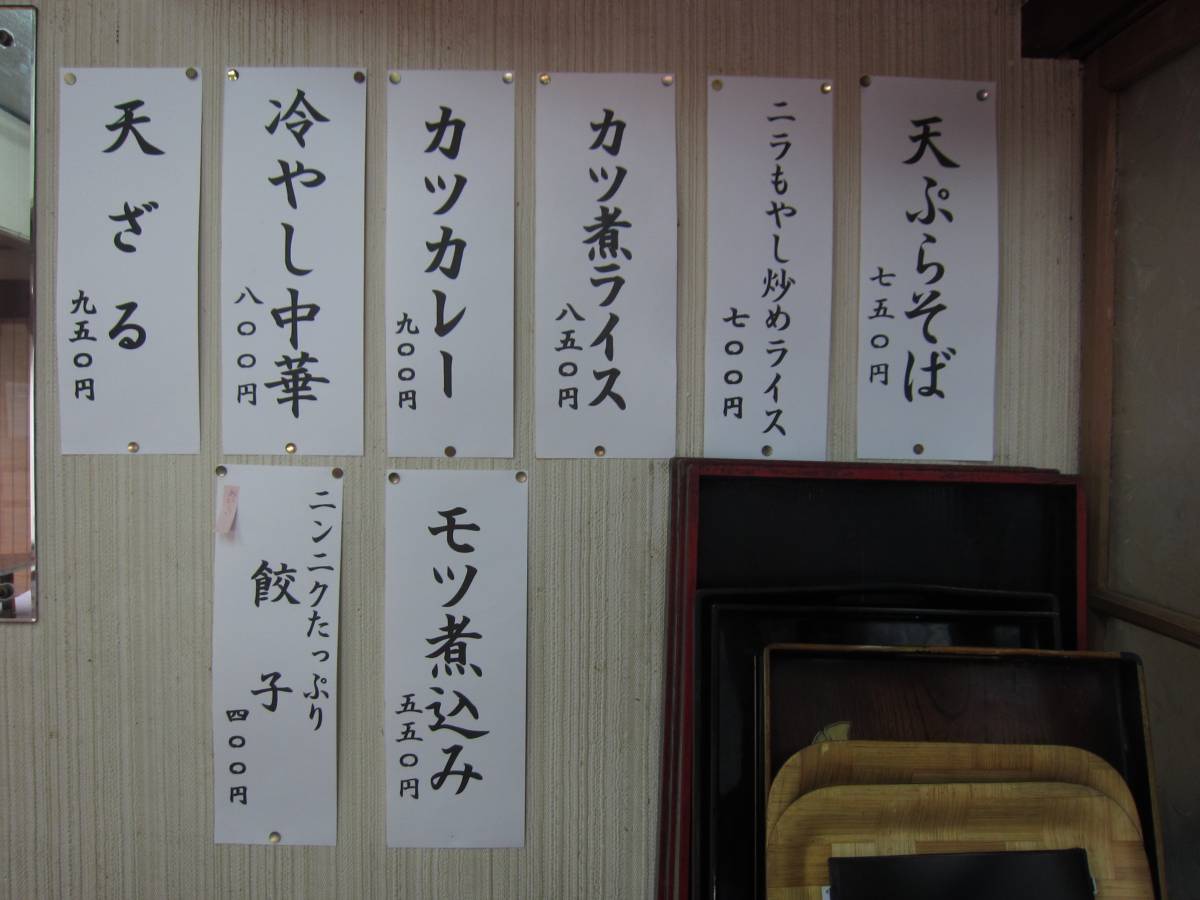 天ぷらそば
七五〇円
ニラもやし炒めライス
七〇〇円
カツ煮ライス
八五〇円
カツカレー
九〇〇円
冷やし中華
八〇〇円
天ざる
九五〇円
モツ煮込み
五五〇円
ニンニクたっぷり
餃子
四〇〇円